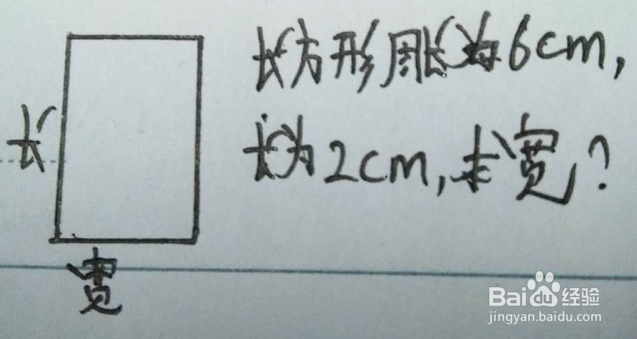 长方形周长为6cm,
长为2cm,求宽?
长
宽
Baidu经验
jingyan.baidu.com